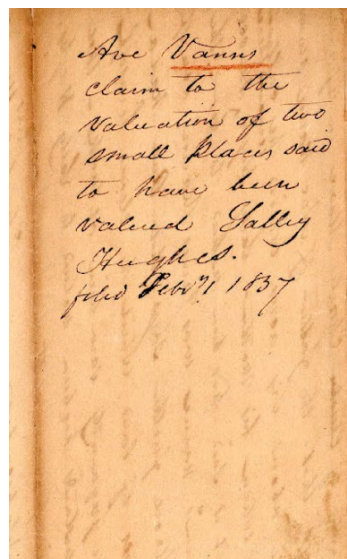 Ave Vanns
claim to the
valuation of two
small places said
to have been
valued Salley
Hughes.
filed Feby 1 1837